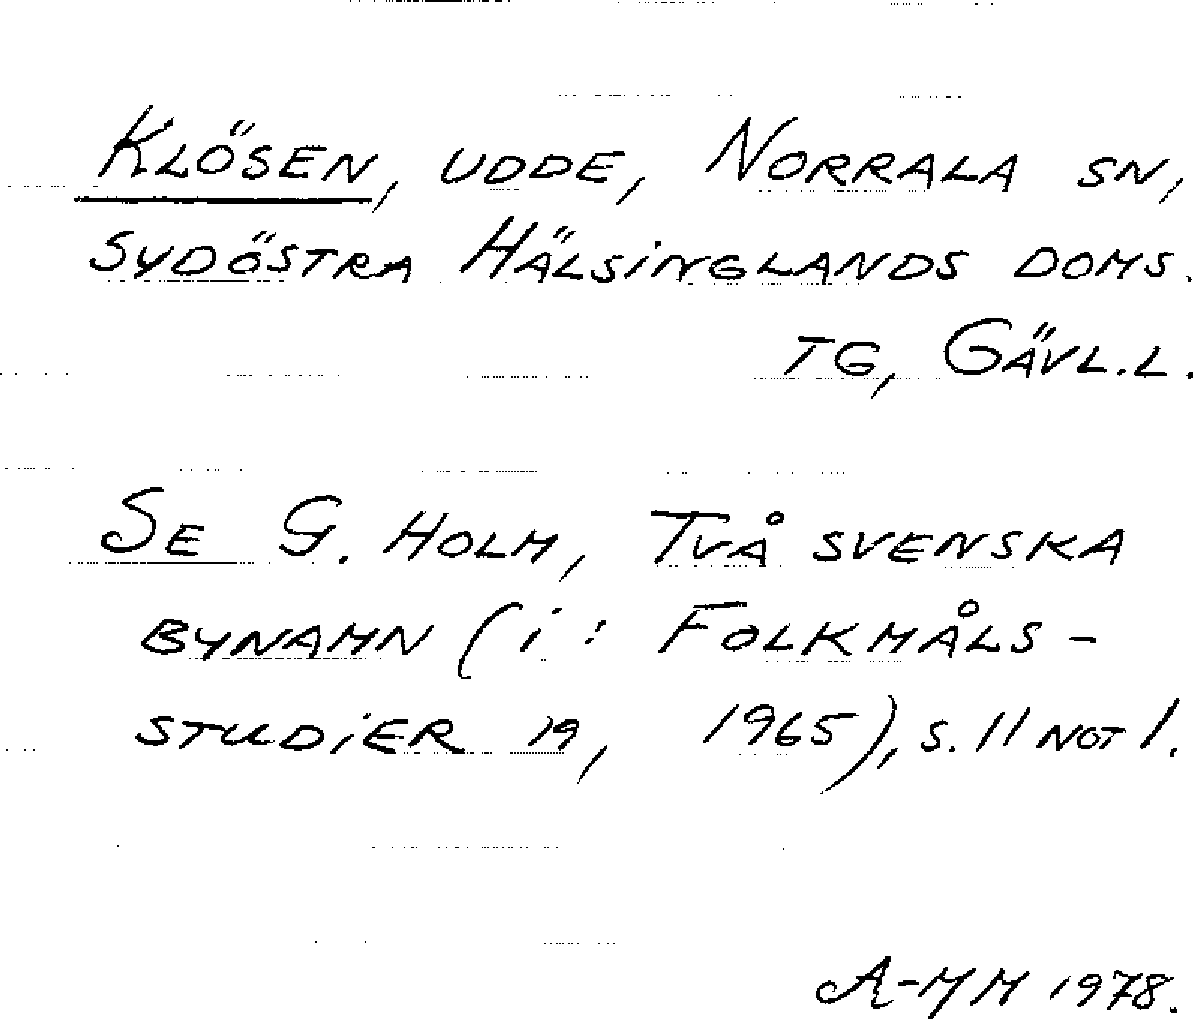 Klösen, udde, Norrala sn,
sydöstra Hälsinglands doms.
tg, Gävl.l.
Se G. Holm, Två svenska
bynamn (i: Folkmåls-
studier 19, 1965), s. 11 not 1.
A-MM 1978.